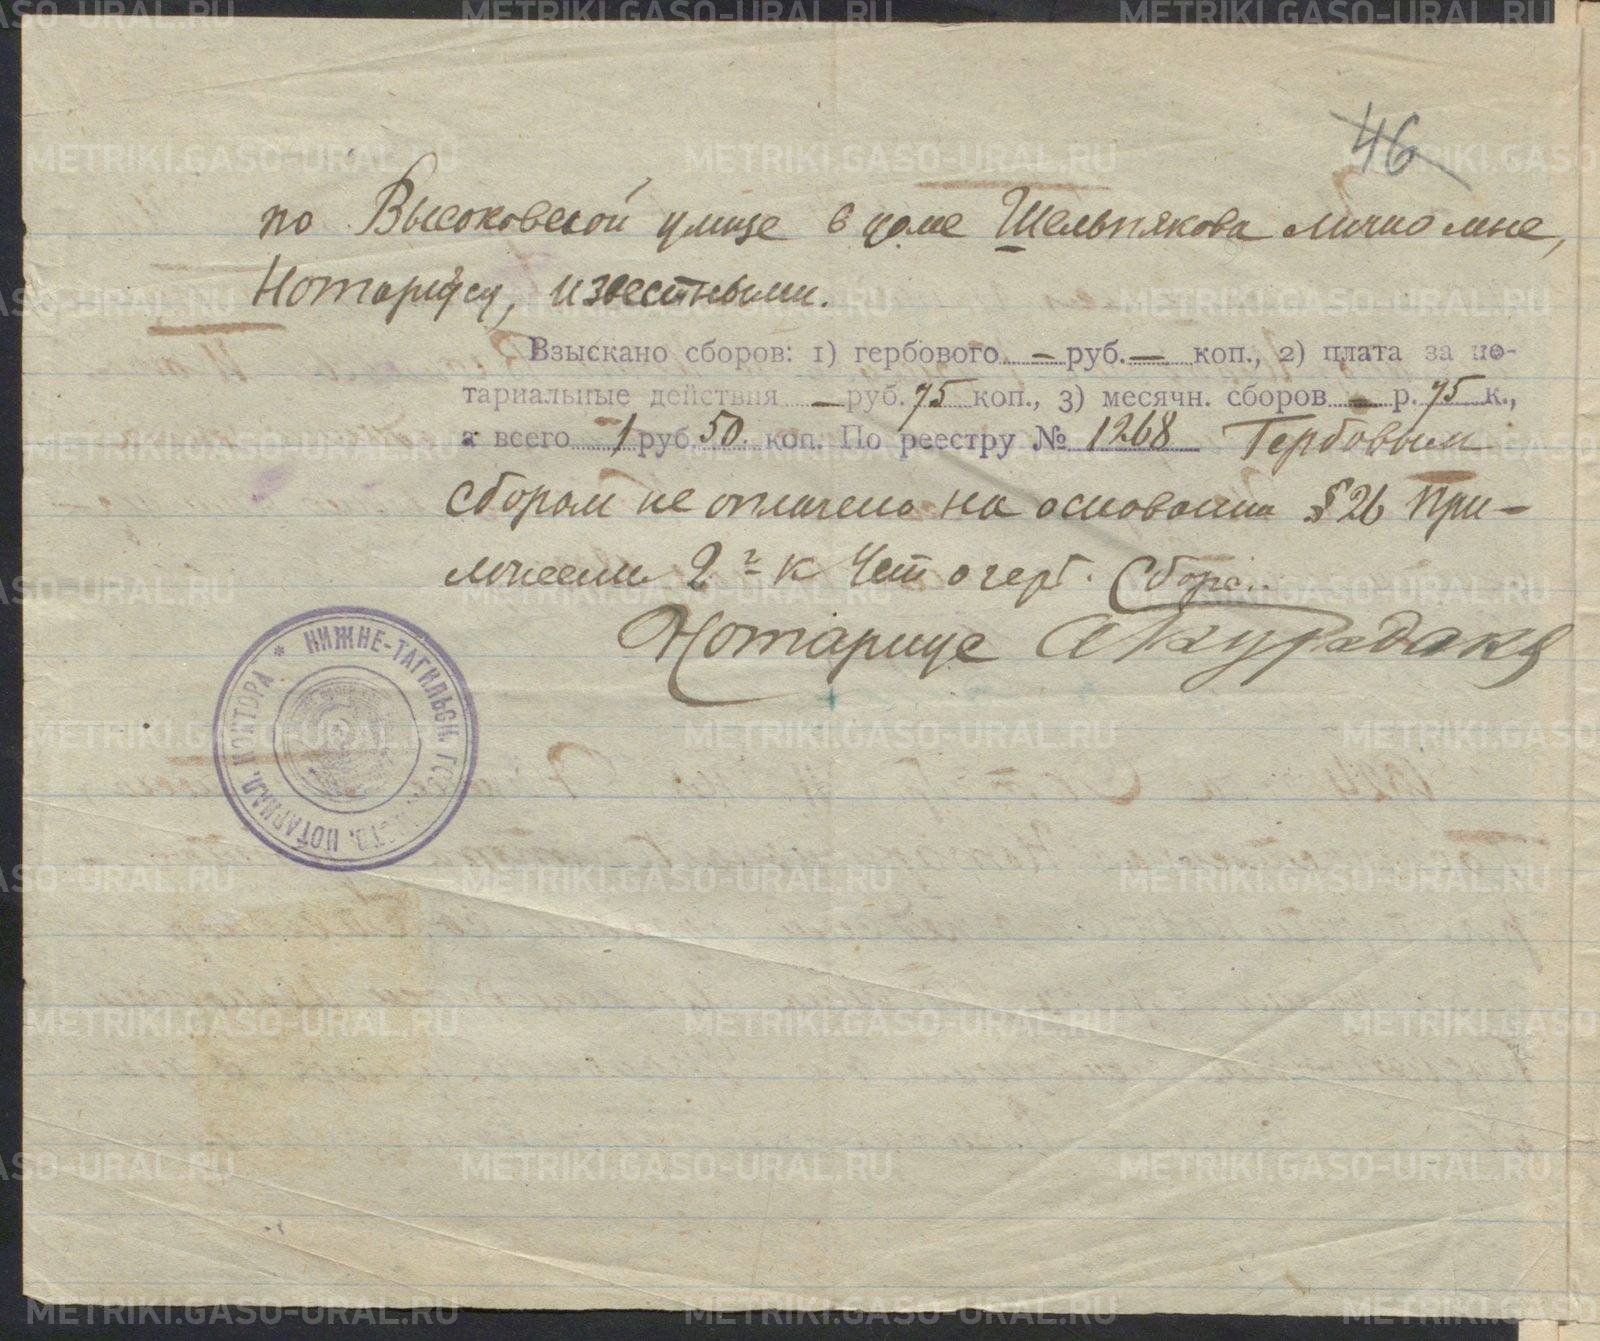 46
по Высоковской улице в доме Шельпякова лично мне,
Нотариусу, известными.
Взыскано сборов: 1) гербового — руб. — коп., 2) плата за но-
тариальные действия — руб. 75 коп., 3) месячн. сборов — р. 75 к.,
а всего 1 руб. 50 коп. По реестру № 1268 Гербовым
сбором не оплачено на основании § 26 При-
2 к о герб. сборе.
Нотариус
НИЖНЕ-ТАГИЛЬСК. НОТАРИАЛ. КОНТОРА *
METRIKI.GASO-URAL.RU